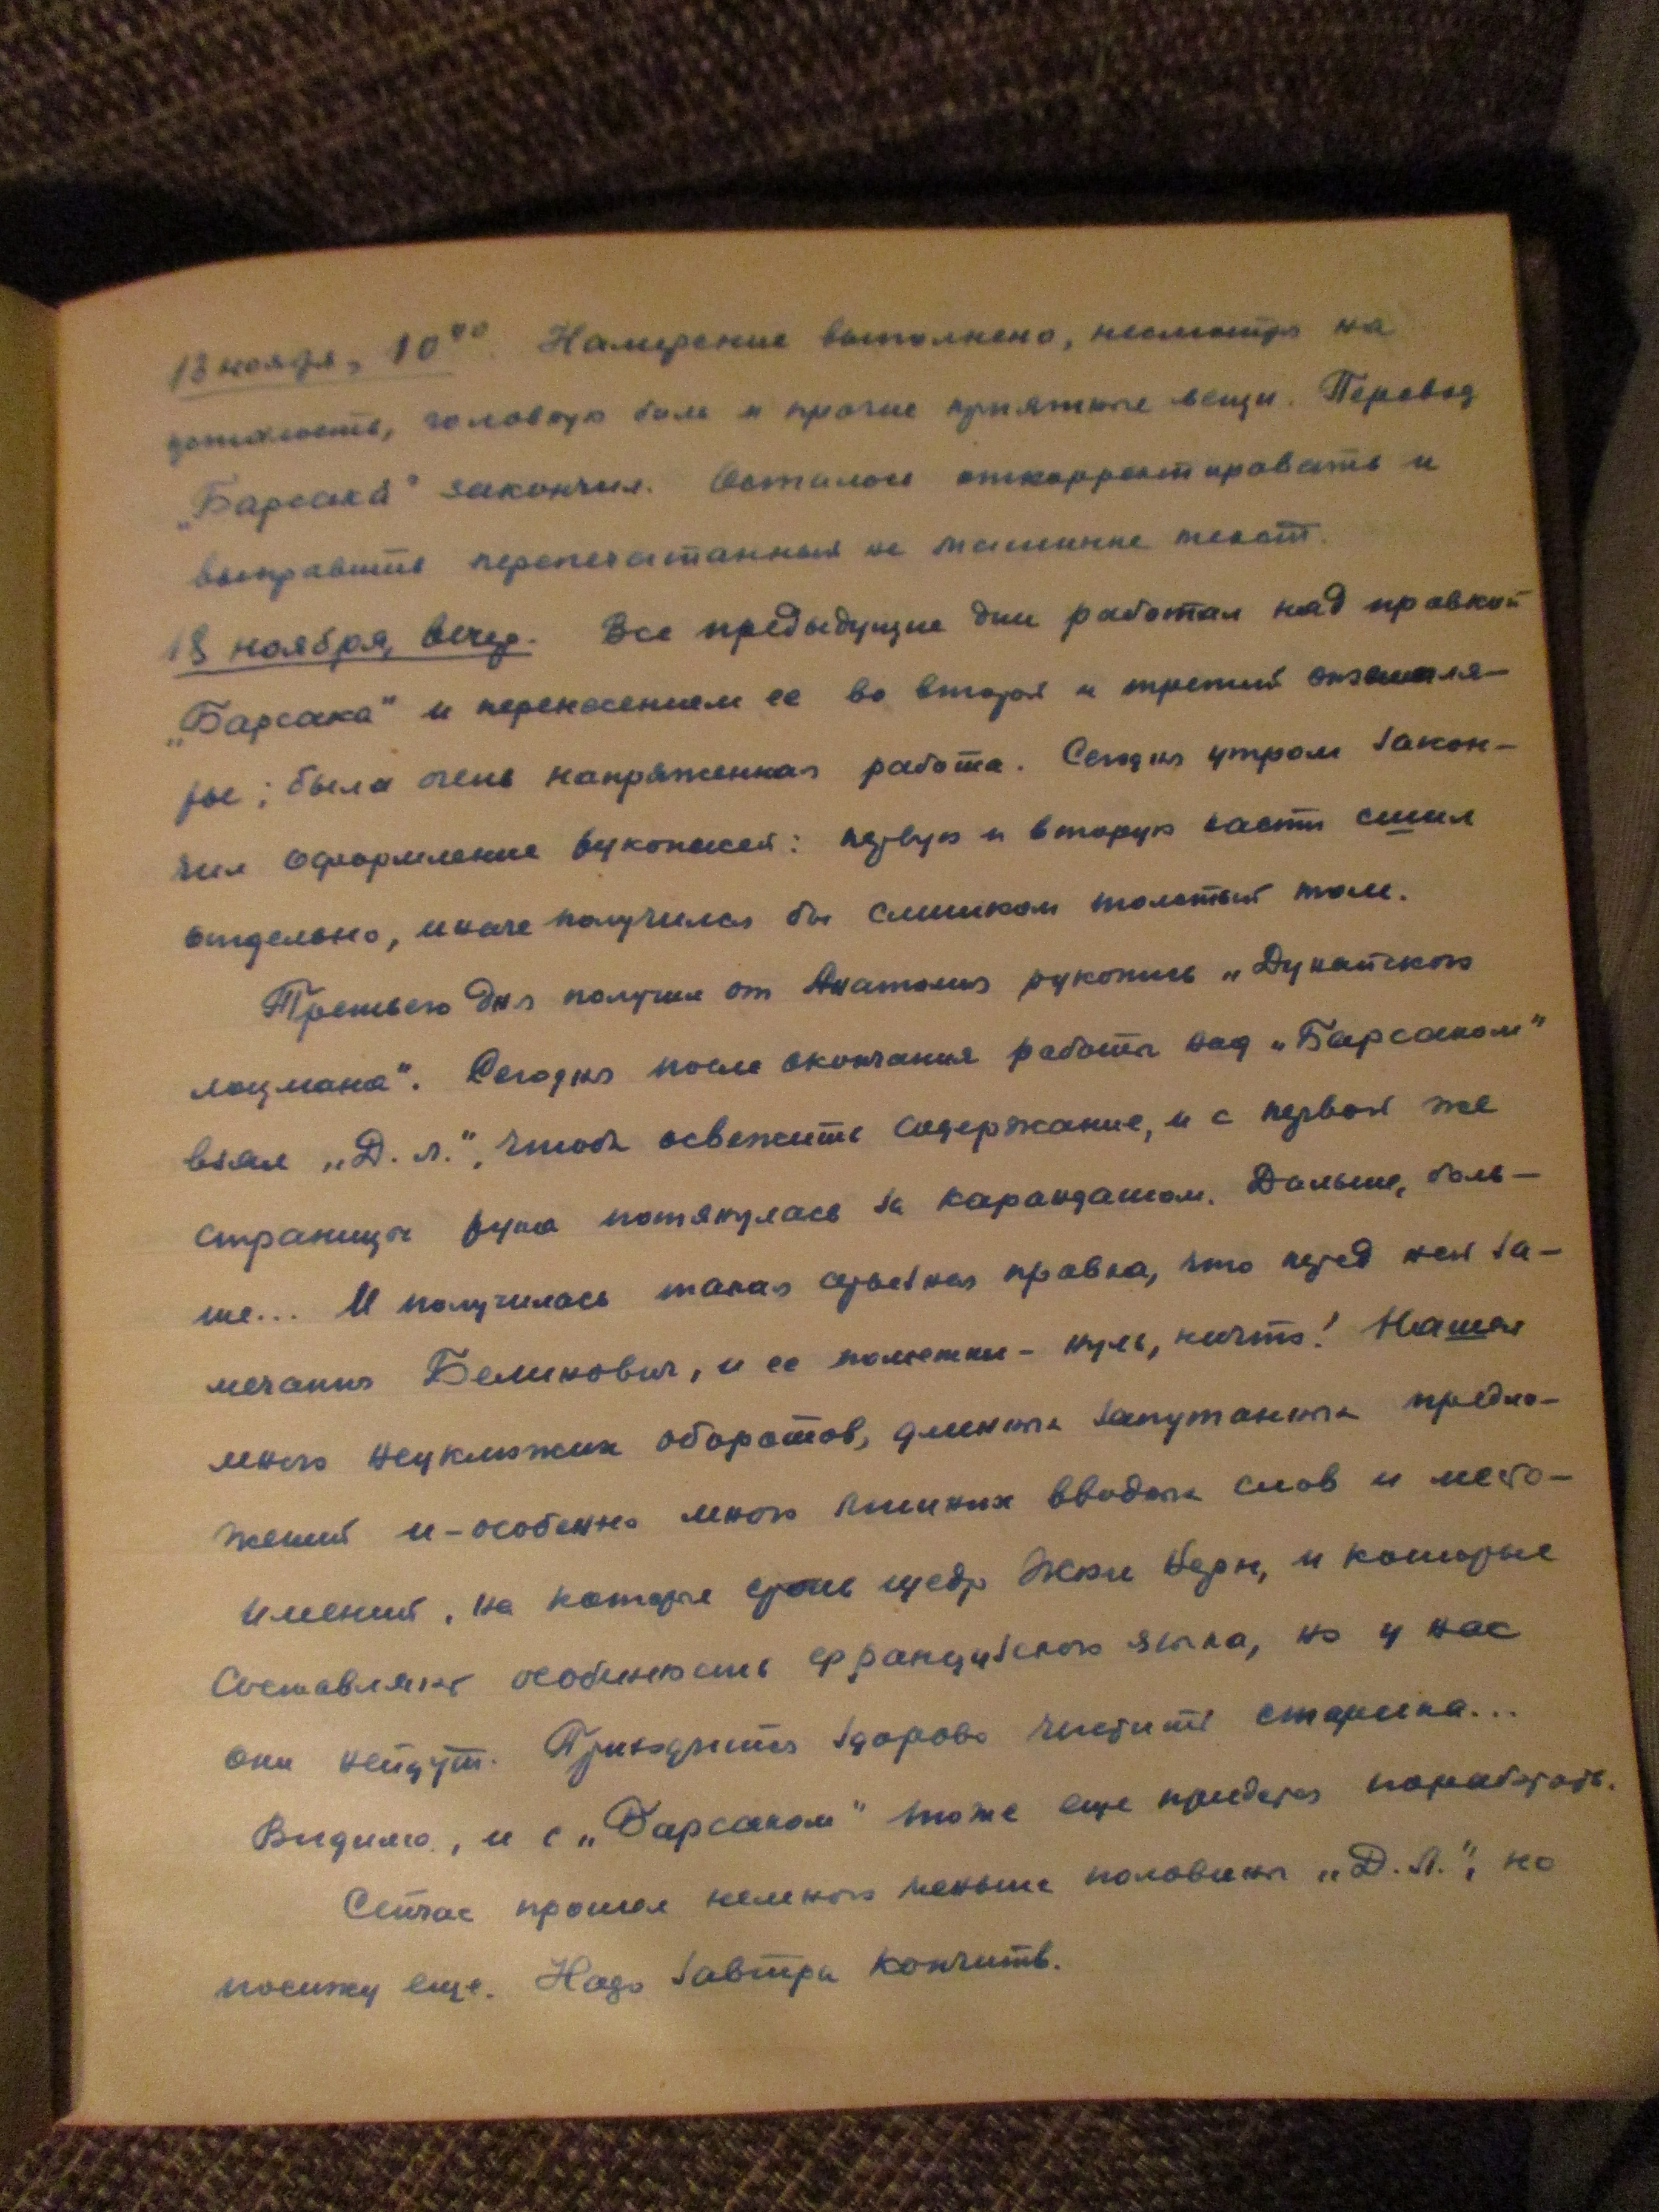 13 ноября, 10⁴⁰. Намерение выполнено, несмотря на
усталость, головную боль и прочие приятные вещи. Перевод
„Барсака“ закончил. Осталось откорректировать и
выправить перепечатанный на машинке текст.
18 ноября, вечер. Все предыдущие дни работал над правкой
„Барсака“ и перенесением ее во второй и третий экземпля-
ры; была очень напряженная работа. Сегодня утром закон-
чил оформление рукописей: первую и вторую части сшил
отдельно, иначе получился бы слишком толстый том.
Третьего дня получил от Анатолия рукопись „Дунайского
лоцмана“. Сегодня после окончания работы над „Барсаком“
взял „Д. л.“, чтоб освежить содержание, и с первой же
страницы рука потянулась за карандашом. Дальше, боль-
ше... И получилась такая серьезная правка, что перед ней за-
мечания Беликович, и ее пометки - нуль, ничто! Нашел
много неуклюжих оборотов, длинных запутанных предло-
жений и - особенно много лишних вводных слов и место-
имений, на которые столь щедр Жюль Верн, и которые
составляют особенность французского языка, но у нас
они нейдут. Приходится здорово чистить старика...
Видимо, и с „Барсаком“ тоже еще придется поработать.
Сейчас прошел немного меньше половины „Д. Л.“, но
посижу еще. Надо завтра кончить.